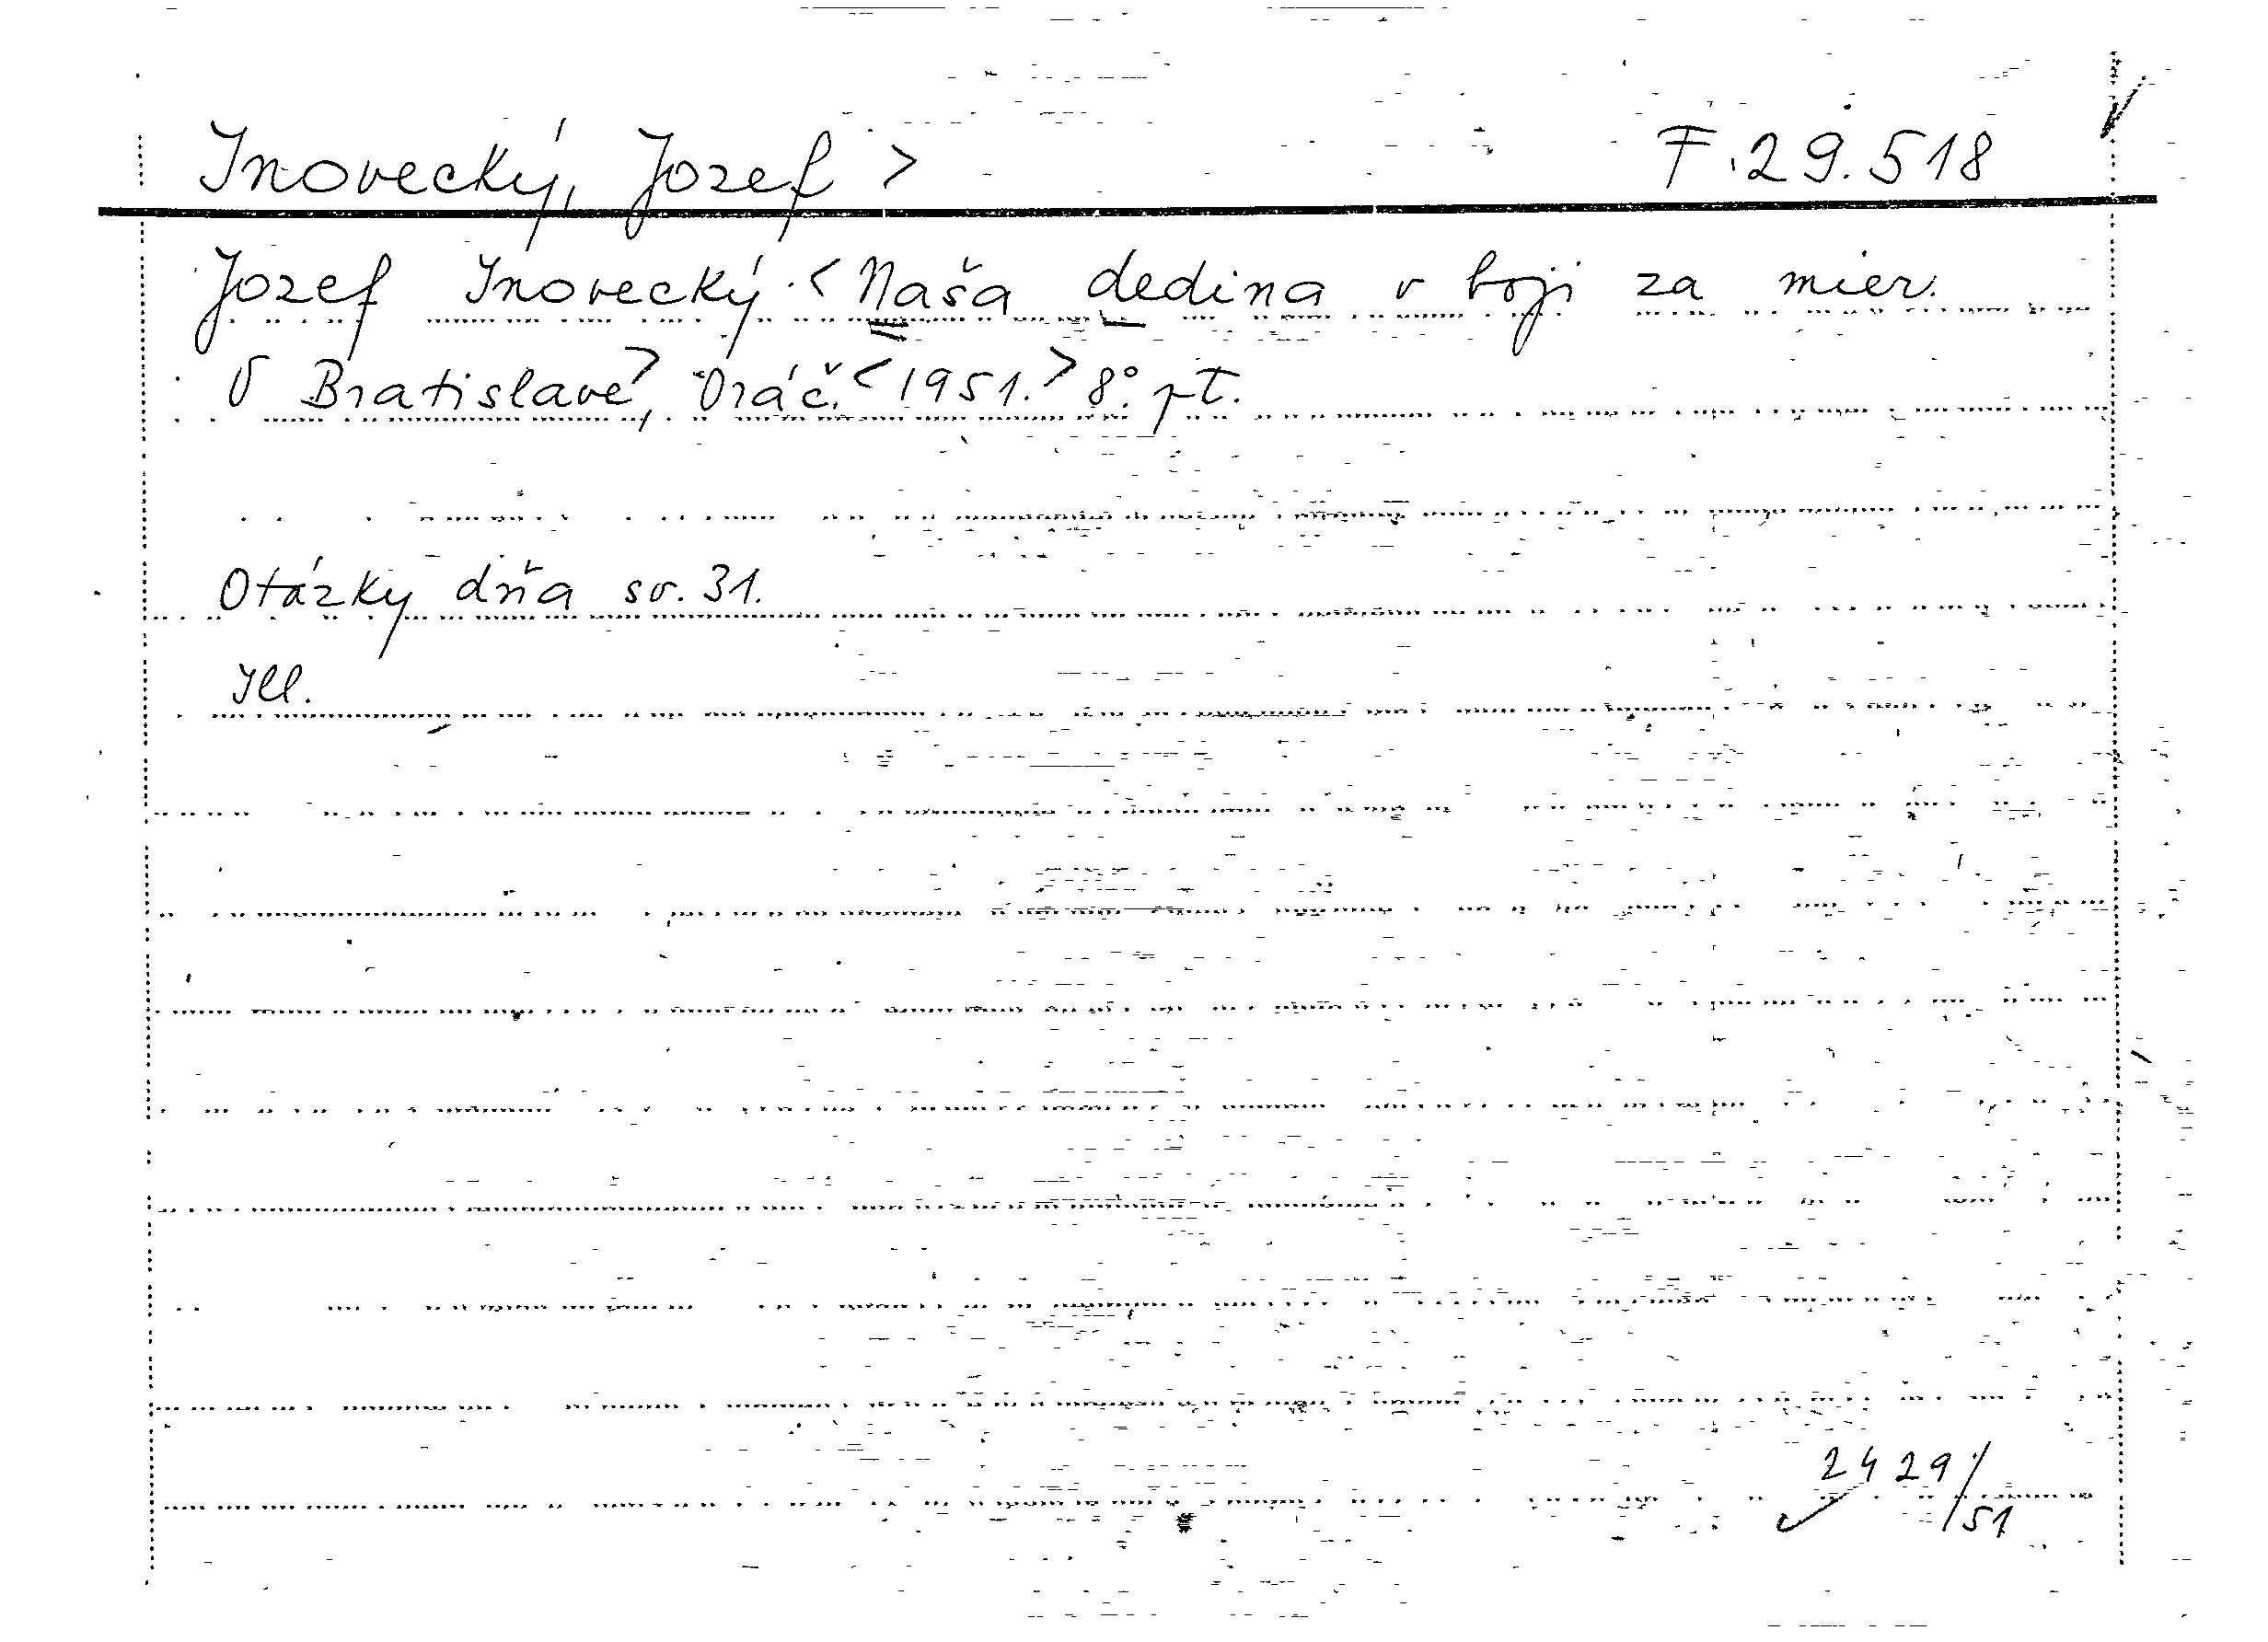 Inovecký, Jozef > F. 29.518
Jozef Inovecký. < Naša dedina v boji za mier.
V Bratislave >, Oráč. < 1951. > 8°. pt.
Otázky dňa sv. 31.
Ill.
2429/51